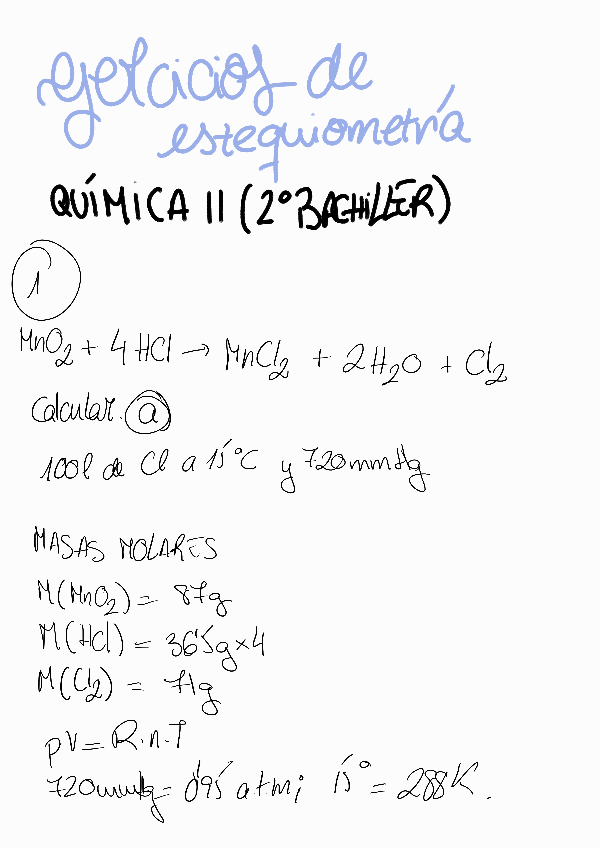 ejercicios de
estequiometría
QUÍMICA II (2º BACHILLER)
1
MnO₂ + 4 HCl → MnCl₂ + 2H₂O + Cl₂
Calcular. a
100l de Cl a 15°C y 720mmHg
MASAS MOLARES
M(MnO₂) = 87g
M(HCl) = 36'5g×4
M(Cl₂) = 71g
pV = R.n.T
720mmHg = 0'95 atm; 15° = 288K.